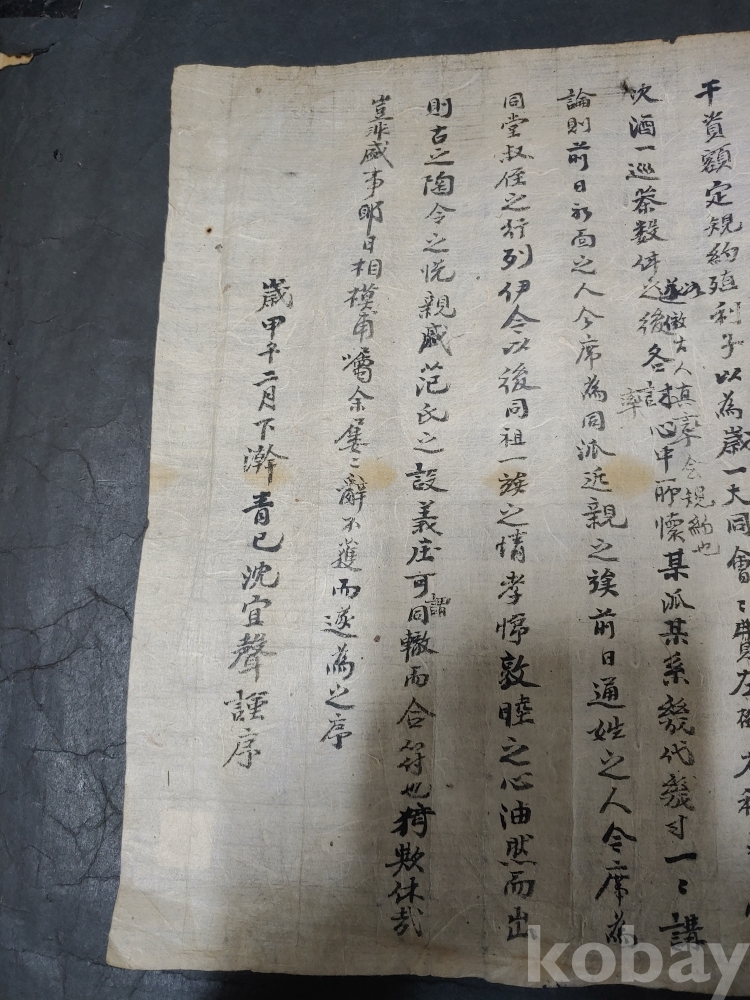 干資額定規約殖利子以為歲一大同會〻費
次酒一巡茶數係之後各言其心中所懷某派某系幾代幾寸一〻講
遂倣古人真率會規約也
論則前日初面之人今席為同派近親之族前日通姓之人今席為
同堂叔侄之行列伊今以後同祖一族之情孝悌敦睦之心油然而出
則古之陶令之悅親戚范氏之設義庄可謂同轍而合符也猗歟休哉
豈非盛事耶日相模甫囑余屢〻辭不獲而遂為之序
歲甲子二月下澣青巳沈宜聲謹序
kobay